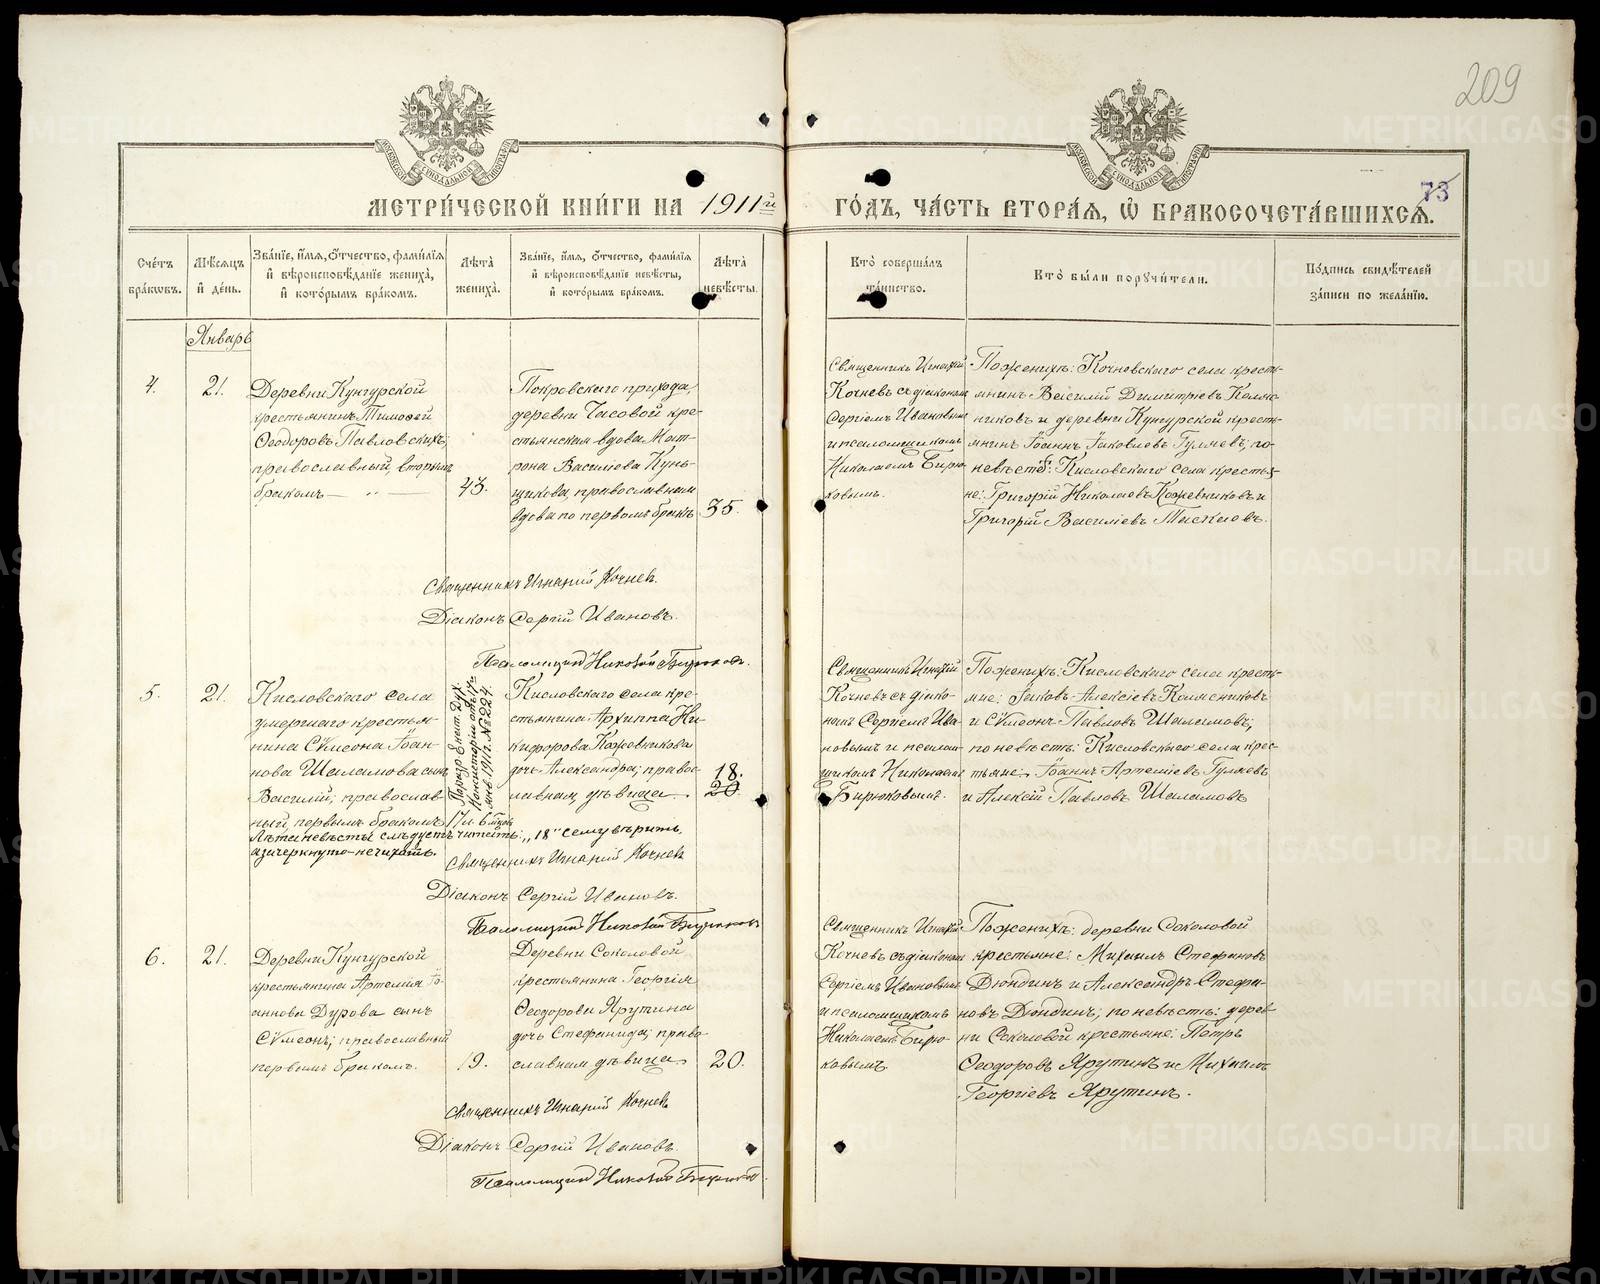 209
МОСКОВСКОЙ СѴНОДАЛЬНОЙ ТИПОГРАФІИ
МОСКОВСКОЙ СѴНОДАЛЬНОЙ ТИПОГРАФІИ
73
МЕТРИ́ЧЕСКОЙ КНИ́ГИ НА 1911й
ГО́ДЪ, ЧА́СТЬ ВТОРА́Я, Ѡ БРАКОСОЧЕТА́ВШИХСЯ.
Сче́тъ
бра́кѡвъ.
Мѣ́сяцъ
и҆ де́нь.
Зва́нїе, и҆́мѧ, о҆́тчество, фами́лїѧ
и҆ вѣроисповѣ́данїе жениха̀,
и҆ кото́рымъ бра́комъ.
Лѣ́та
жениха̀.
Зва́нїе, и҆́мѧ, о҆́тчество, фами́лїѧ
и҆ вѣроисповѣ́данїе невѣ́сты,
и҆ кото́рымъ бра́комъ.
Лѣ́та
невѣ́сты.
Кто̀ соверша́лъ
та́инство.
Кто̀ бы́ли порꙋчи́тели.
По́дпись свидѣ́телей
за́писи по жела́нїю.
Январь
4.
21.
Деревни Кунгурской
крестьянинъ Тимоѳей
Ѳеодоровъ Павловскихъ;
православный, вторымъ
бракомъ — " —
43.
Покровскаго прихода,
деревни Часовой кре-
стьянская вдова Мат-
рона Василіева Кунь-
щикова, православная
вдова по первомъ бракѣ
35.
Священникъ Игнатій
Кочневъ съ діакономъ
Сергіемъ Ивановымъ
и псаломщикомъ
Николаемъ Бирю-
ковымъ.
По женихѣ: Кочневскаго села кресть-
янинъ Василій Димитріевъ Камяс-
никовъ и деревни Кунгурской кресть-
янинъ Іоаннъ Іаковлевъ Гуляевъ; по
невѣстѣ: Кисловскаго села крестья-
не: Григорій Николаевъ Кожевниковъ и
Григорій Василіевъ
Священникъ Игнатій Кочнев.
Діаконъ Сергій Ивановъ.
Псаломщикъ Николай Бирюковъ.
5.
21.
Кисловскаго села
умершаго крестья-
нина Сѵмеона Іоан-
нова Шаламова сынъ
Василій, православ-
ный, первымъ бракомъ
Разрѣш. Екат. Дух.
Консисторіи отъ
янв. 1911 г. № 224.
17 л. 6 мѣсяц.
Кисловскаго села кре-
стьянина Архиппа Ни-
кифорова Кожевникова
дочь Александра; право-
славная дѣвица.
18.
20.
Лѣта невѣсты слѣдуетъ читать: „18" сему вѣрить,
а зачеркнуто не читать.
Священникъ Игнатій
Кочневъ съ діако-
номъ Сергіемъ Ива-
новымъ и псалом-
щикомъ Николаемъ
Бирюковымъ.
По женихѣ: Кисловскаго села кресть-
яне: Іаковъ Алексіевъ Камясниковъ
и Сѵмеонъ Павловъ Шаламовъ;
по невѣстѣ: Кисловскаго села крес-
тьяне: Іоаннъ Артеміевъ Гуляевъ
и Алексій Павловъ Шаламовъ
Священникъ Игнатій Кочневъ
Діаконъ Сергій Ивановъ.
Псаломщикъ Николай Бирюковъ
6.
21.
Деревни Кунгурской
крестьянина Артемія Іо-
аннова Дурова сынъ
Сѵмеонъ; православный
первымъ бракомъ.
19.
Деревни Соколовой
крестьянина Георгія
Ѳеодорова Ярутина
дочь Стефанида; право-
славная дѣвица
20.
Священникъ Игнатій
Кочневъ съ діакономъ
Сергіемъ Ивановымъ
и псаломщикомъ
Николаемъ Бирю-
ковымъ.
По женихѣ: деревни Соколовой
крестьяне: Михаилъ Стефановъ
Дюндинъ и Александръ Стефа-
новъ Дюндинъ; по невѣстѣ: дерев-
ни Соколовой крестьяне: Петръ
Ѳеодоровъ Ярутинъ и Михаилъ
Георгіевъ Ярутинъ.
Священникъ Игнатій Кочневъ
Діаконъ Сергій Ивановъ.
Псаломщикъ Николай Бирюковъ.
METRIKI.GASO-URAL.RU